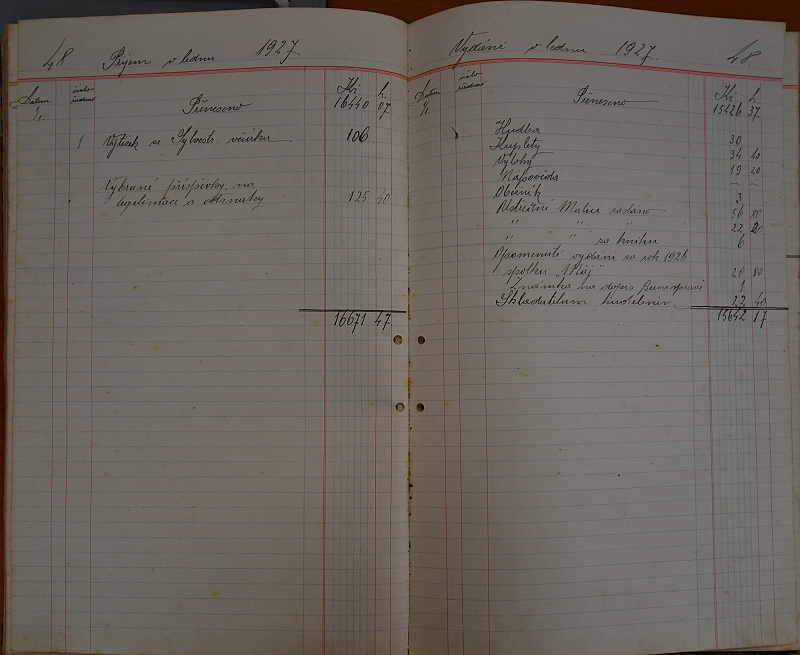 48 Příjem v lednu 1927
Datum číslo Kč h
1/1. Přeneseno 16440 07
1 Výtěžek ze Sylvestr. večírku 106
Vybrané příspěvky, na
legitimace a odznaky 125 40
16671 47
Vydání v lednu 1927. 48
Datum číslo Kč h.
1/1 Přeneseno 15426 37
Hudba 30
Kuplety 34 40
Výlohy 19 20
Napověda — —
Občerstv 3
Ústřední Matici zasláno 56 80
" " " 22 20
" " za knihu 6
Opomenuté vydání za rok 1926
spolku „Máj" 20 80
Známka na dopis 1
Skladatelům 22 40
15642 17